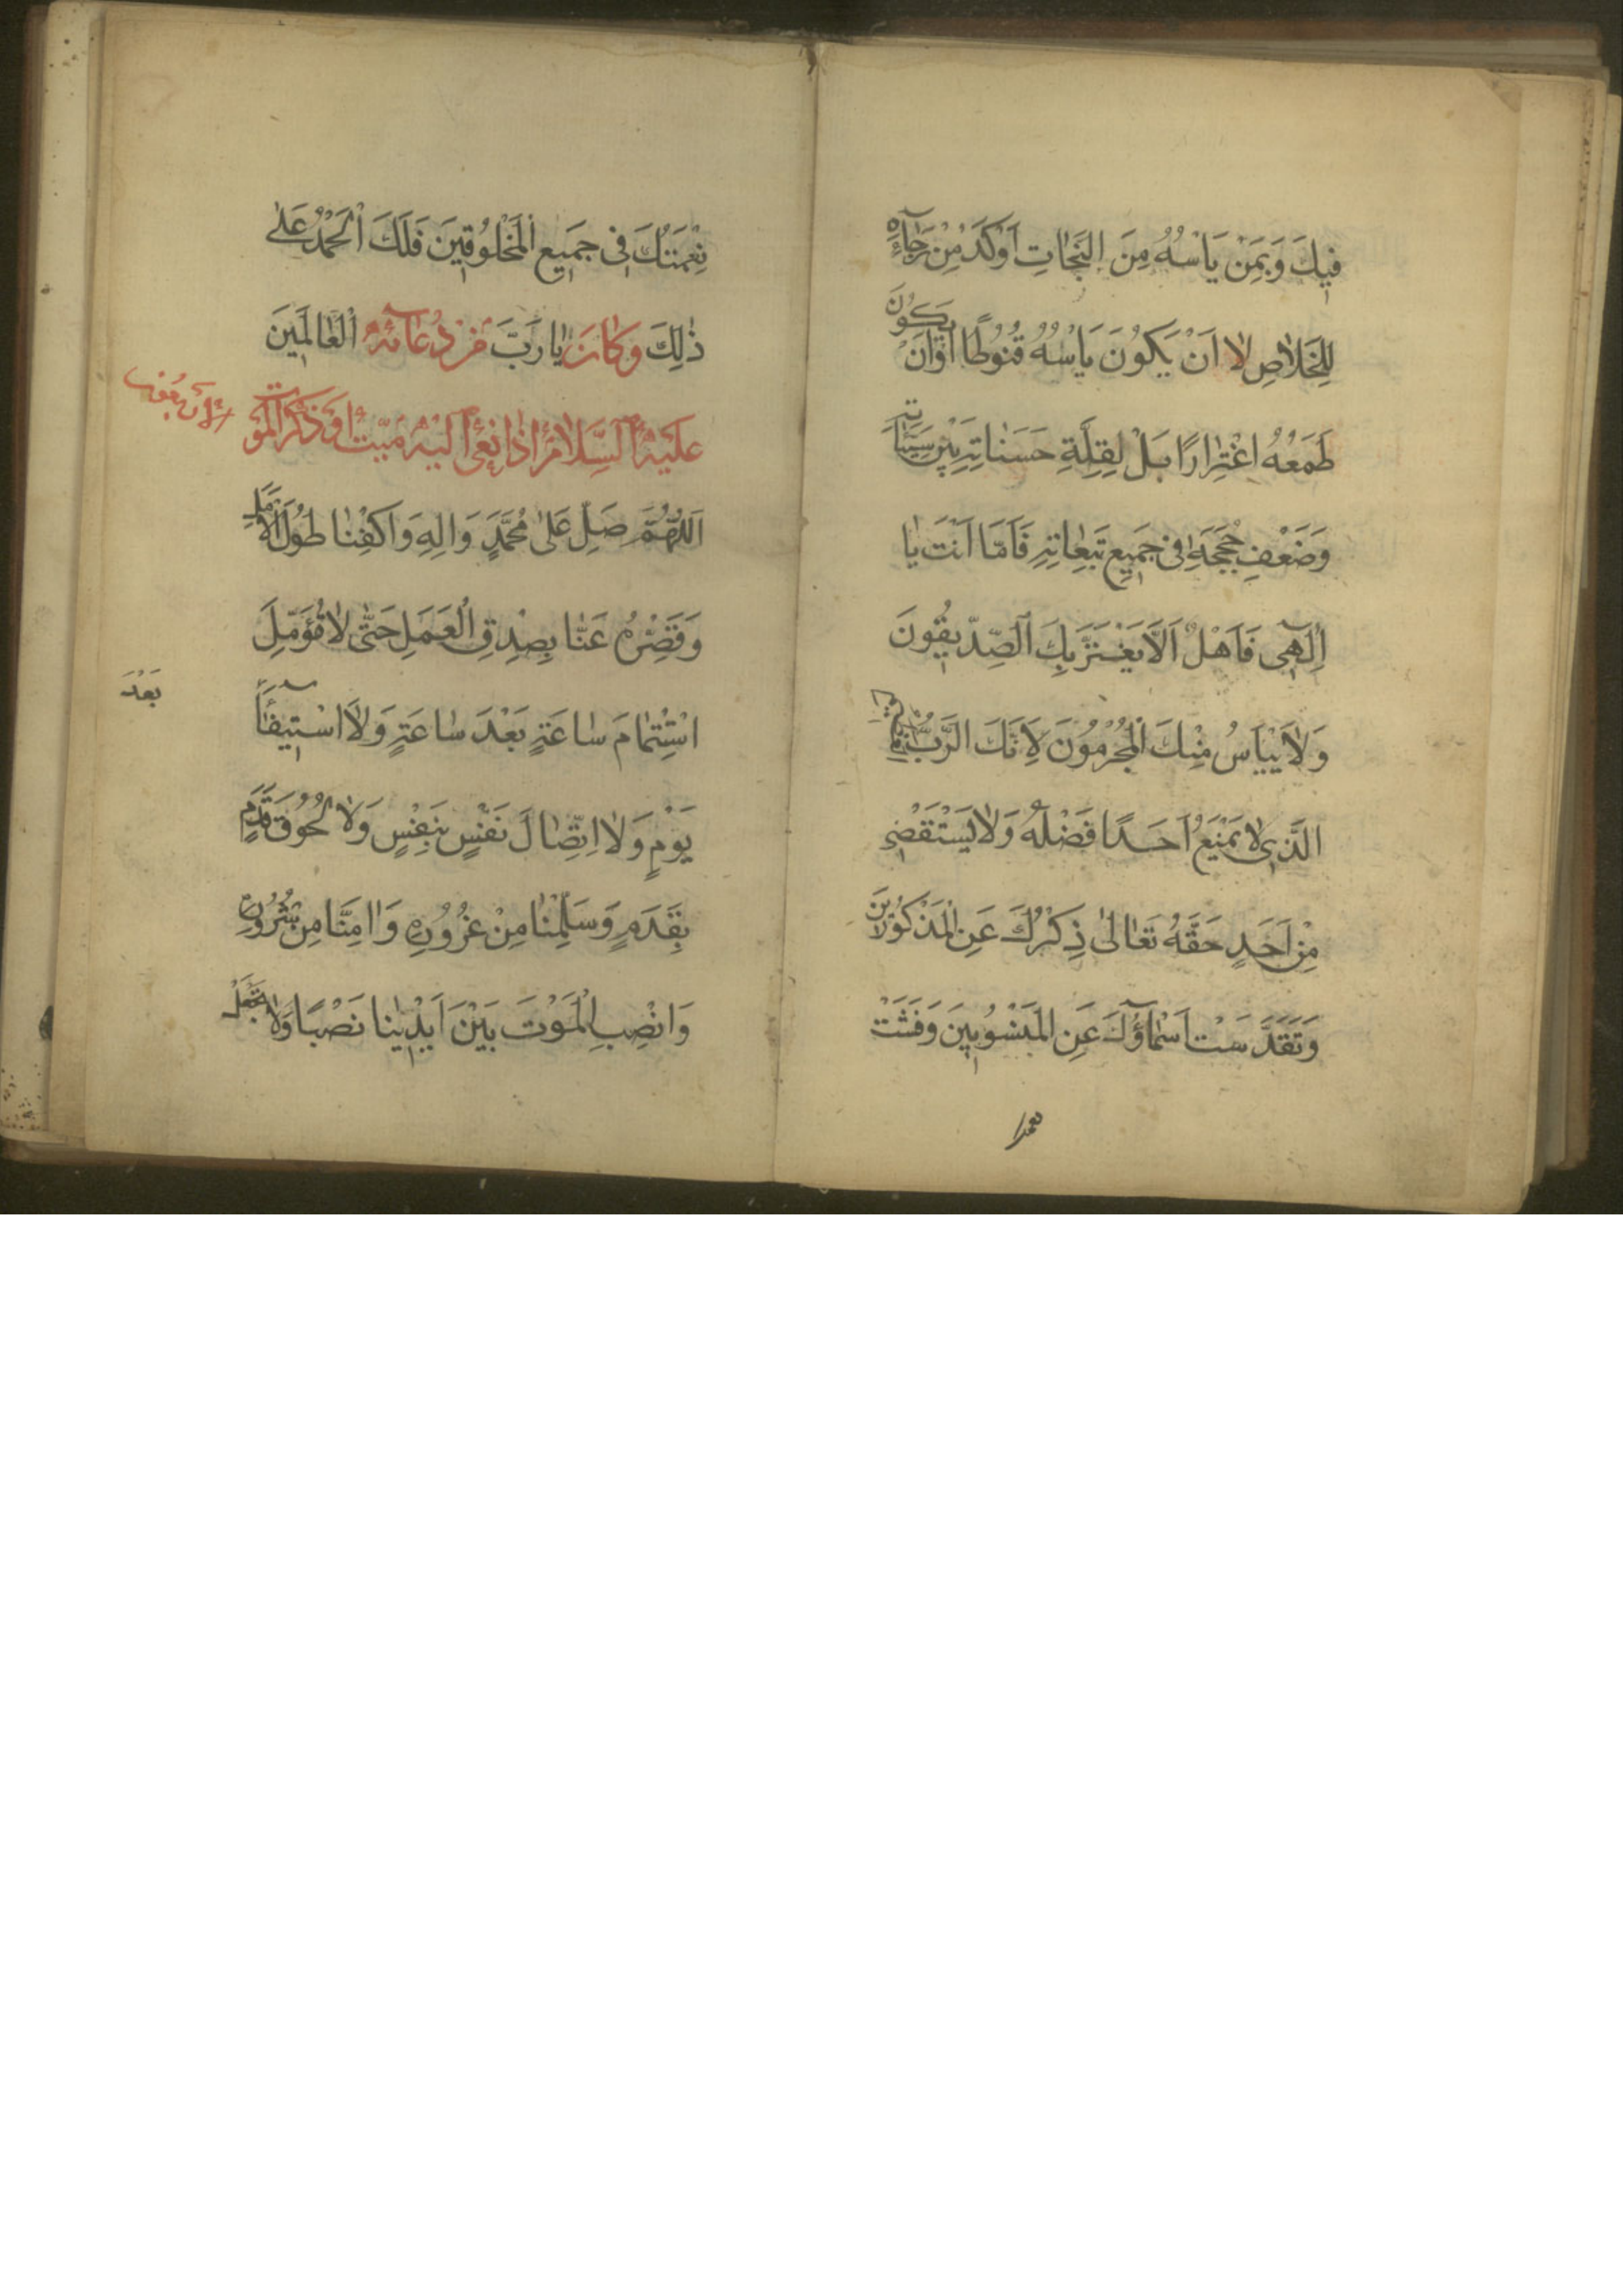 فِيكَ وَبِمَنْ يَاْسُهُ مِنَ النَّجٰاتِ اَوْكَدُ مِنْ رَجٰآئِهِ
لِلْخَلاٰصِ لاٰ اَنْ يَكُونَ يَاْسُهُ قُنُوطًا اَوْاَنْ يَكُونَ
طَمَعُهُ اغْتِرٰارًا بَلْ لِقِلَّةِ حَسَنٰاتِهِ بَيْنَ سَيِّئٰاتِهِ
وَضَعْفِ حُجَجِهِ فِى جَمِيعِ تَبِعٰاتِهِ فَاَمّٰا اَنْتَ يٰا
اِلٰهِى فَاَهْلٌ اَلاّٰ يَغْتَرَّ بِكَ الصِّدِّيقُونَ
وَلاٰ يَيْاَسُ مِنْكَ الْمُجْرِمُونَ لِاَنَّكَ الرَّبُّ الْعَظِيمُ
الَّذِى لاٰ يَمْنَعُ اَحَدًا فَضْلَهُ وَلاٰ يَسْتَقْضِى
مِنْ اَحَدٍ حَقَّهُ تَعٰالىٰ ذِكْرُكَ عَنِ الْمَذْكُورِينَ
وَتَقَدَّسَتْ اَسْمٰآؤُكَ عَنِ الْمَنْسُوبِينَ وَفَشَتْ
نعمتك
نِعْمَتُكَ فِى جَمِيعِ الْمَخْلُوقِينَ فَلَكَ الْحَمْدُ عَلىٰ
ذٰلِكَ يٰا رَبَّ الْعٰالَمِينَ وَكٰانَ مِنْ دُعٰآئِهِ
عَلَيْهِ السَّلاٰمُ اِذٰا نُعِىَ اِلَيْهِ مَيِّتٌ اَوْ ذَكَرَ الْمَوْتَ
اَللّٰهُمَّ صَلِّ عَلىٰ مُحَمَّدٍ وَاٰلِهِ وَاكْفِنٰا طُولَ الْاَمَلِ
وَقَصِّرْهُ عَنّٰا بِصِدْقِ الْعَمَلِ حَتّٰى لاٰ نُؤَمِّلَ
اسْتِتْمٰامَ سٰاعَةٍ بَعْدَ سٰاعَةٍ وَلاٰ اسْتِيفٰآءَ
بَعْدَ
يَوْمٍ وَلاٰ اتِّصٰالَ نَفَسٍ بِنَفَسٍ وَلاٰ لُحُوقَ قَدَمٍ
بِقَدَمٍ وَسَلِّمْنٰا مِنْ غُرُورِهِ وَاٰمِنّٰا مِنْ شُرُورِهِ
وَانْصِبِ الْمَوْتَ بَيْنَ اَيْدِينٰا نَصْبًا وَلاٰ تَجْعَلْ